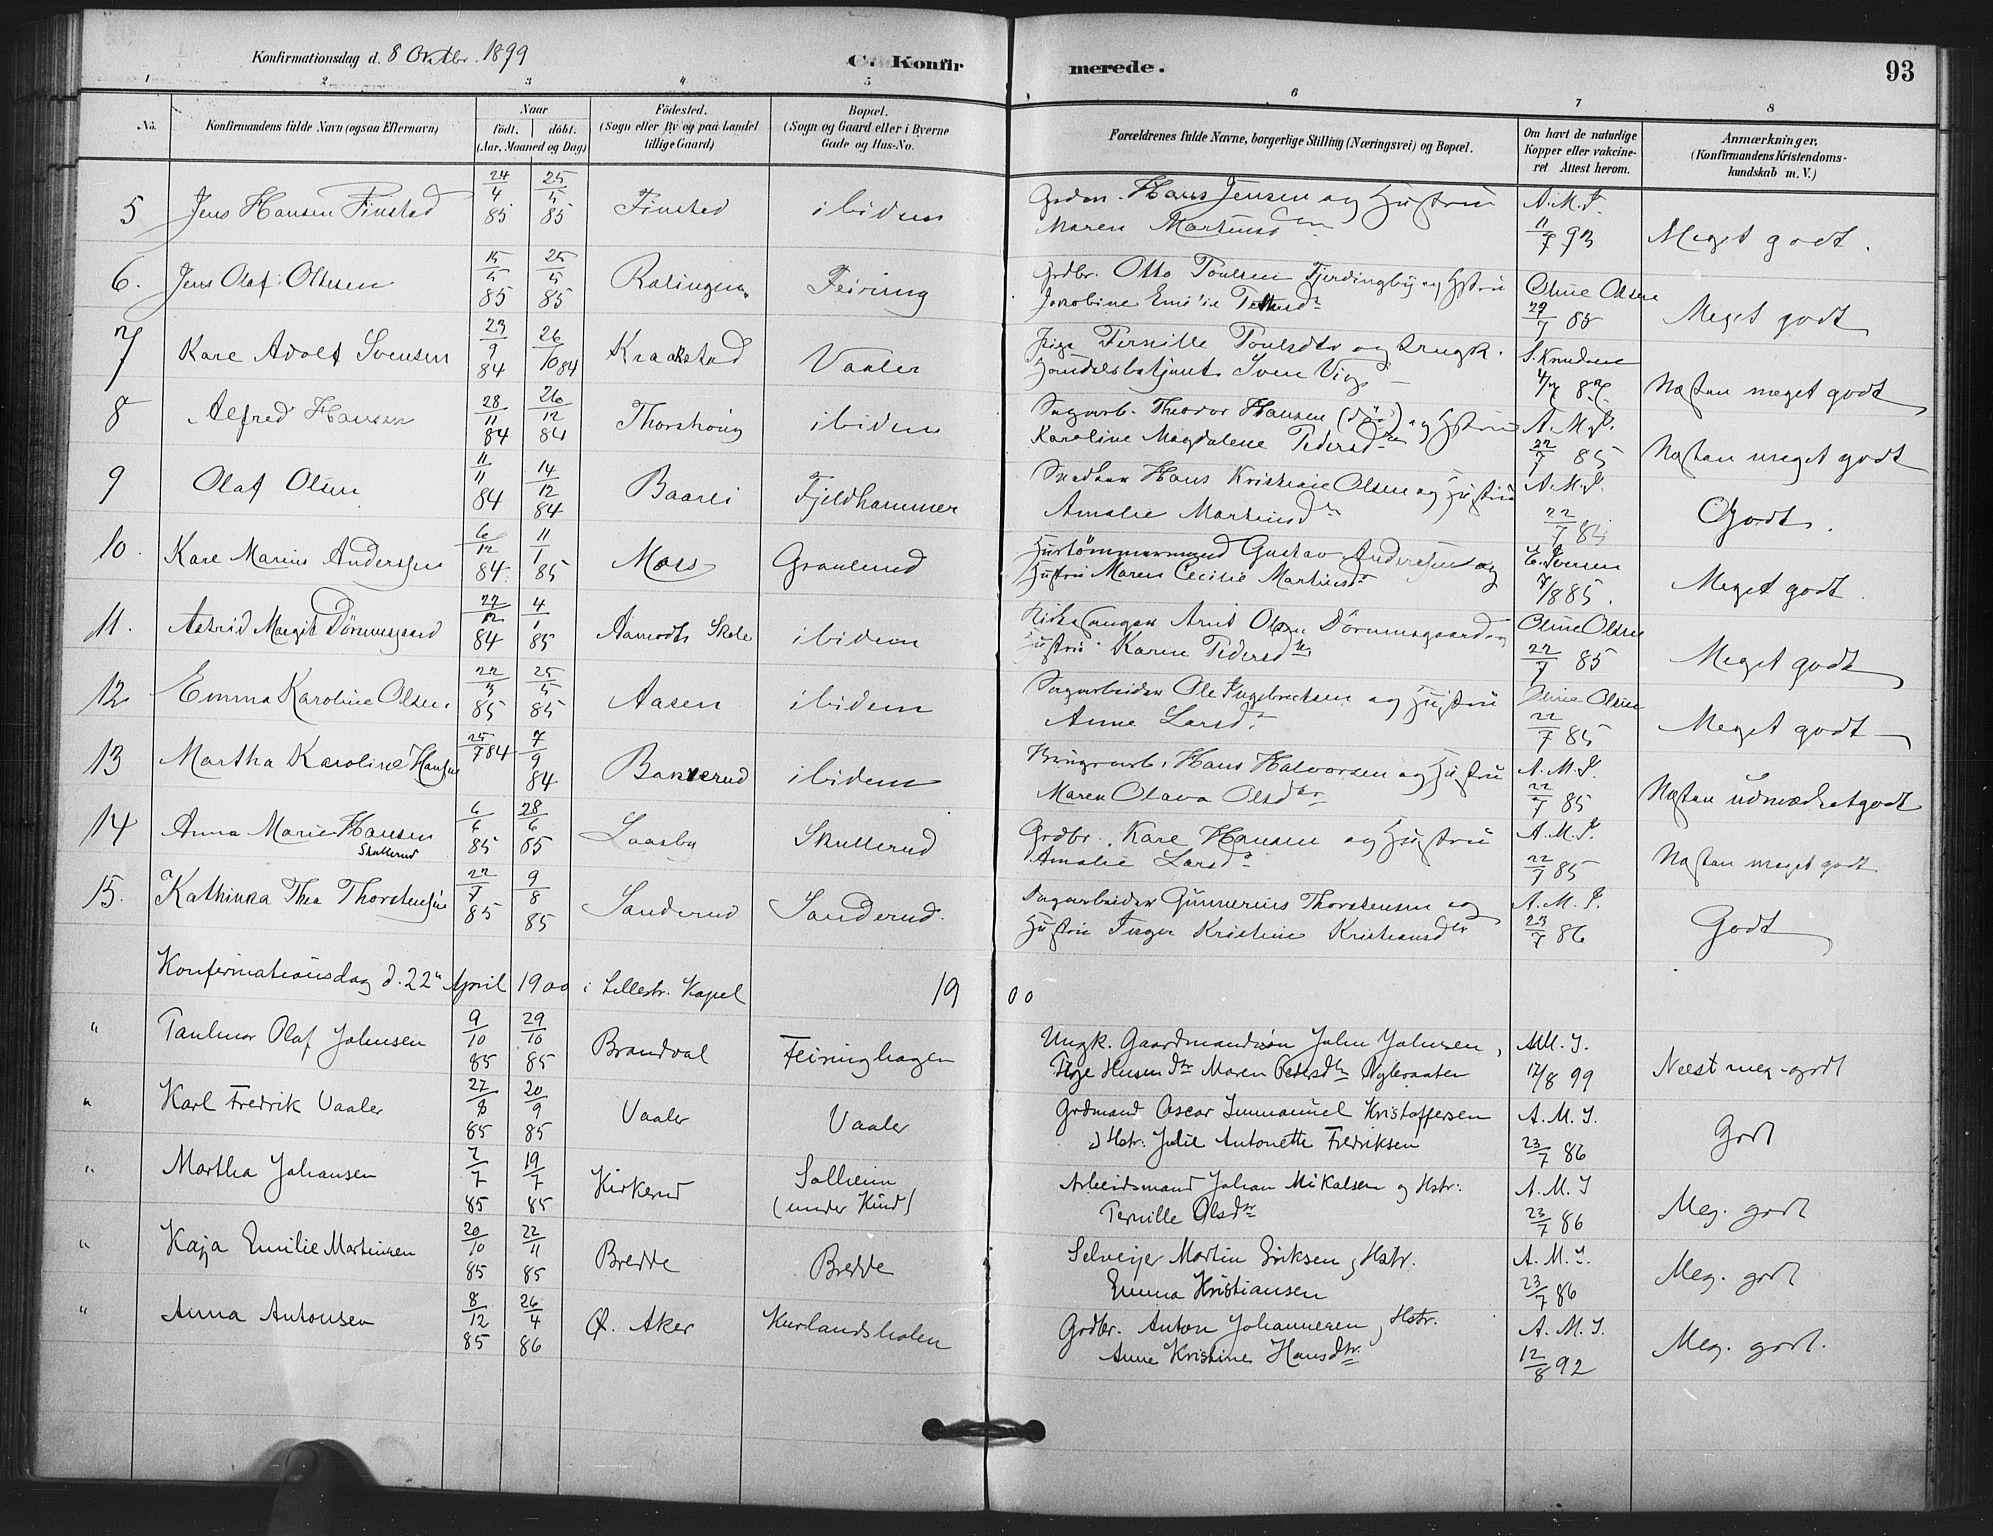 Konfirmationsdag d. 8 Oktbr. 1899
C. Konfir merede. 93
1 2 3 4 5 6 7 8
No. Konfirmandens fulde Navn (ogsaa Efternavn) Naar født. døbt. (Aar, Maaned og Dag) Fødested. (Sogn eller By og paa Landet tillige Gaard) Bopæl. (Sogn og Gaard eller i Byerne Gade og Hus-No. Forældrenes fulde Navne, borgerlige Stilling (Næringsvei) og Bopæl. Om havt de naturlige Kopper eller vakcineret Attest herom. Anmærkninger. (Konfirmandens Kristendomskundskab m. V.)
5 Jens Hansen Finstad 24/4 85 25/5 85 Finstad ibidem Grdm. Hans Jensen og Hustru A. M. I.
Maren Martinsd 11/7 93 Meget godt.
6. Jens Olaf Ottesen 15/5 85 25/5 85 Ralingen Feiring Grdbr. Otto Poulsen Fjerdingby og Hstru Oline Olsen
Jakobine Emilie Pettersdr 29/7 85 Meget godt
7 Karl Adolf Svensen 23/9 84 26/10 84 Kraakstad Vaaler Pige Pernille Poulsdtr og Ungk. S. Knudsen
Handelsbetjent Sven Vig Næsten meget godt
8 Alfred Hansen 28/11 84 26/12 84 Thorshoug ibidem Sagarb. Theodor Hansen (død) og Hstru A. M. I.
Karoline Magdalene Pedersd 22/7 85 Næsten meget godt
9 Olaf Olsen 11/11 84 14/12 84 Baarli Fjeldhammer Hans Kristian Olsen og Hustru A. M. I.
Amalie Martinsd 22/7 85 Godt.
10. Karl Marius Anderssen 6/12 84. 11/1 85 Moss Granlund Hustømmermand Gustav Anderssen og E. Iversen
Hustru Maren Cecilie Martinsdr 7/8 85. Meget godt.
11. Astrid Margit Dørumsgaard 22/12 84 4/1 85 Aamodts Skole ibidem Kirkesanger Arnt Olsen Dørumsgaard og Oline Olsen
Hustru Karen Pedersdtr 22/7 85 Meget godt
12 Emma Karoline Olsen 22/3 85 25/5 85 Aasen ibidem Sagarbeider Ole Ingebretsen og Hustru Oline Olsen
Anne Larsd 22/7 85 Meget godt
13 Martha Karoline Hansen 25/7 84 7/9 84 Bakkerud ibidem Brugsarb. Hans Halvorsen og Hustru A. M. I.
Maren Olava Olsdtr 22/7 85 Næsten udmærketgodt
14 Anna Marie Hansen Skullerud 6/6 85 28/6 85 Laasby Skullerud Grdbr. Karl Hansen og Hustru A. M. I.
Amalie Larsd 22/7 85 Næsten meget godt
15. Kathinka Thea Thorstensen 22/7 85 9/8 85 Sanderud Sanderud. Sagarbeider Gunnerius Thorstensen og A. M. I.
Hustru Inger Kristine Kristiansdtr 23/7 86 Godt
Konfirmationsdag d. 22n April 1900 i Lillestr. Kapel 19 00
" Paulmor Olaf Johnsen 9/10 85 29/10 85 Brandval Feiringhagen Ungk. Gaardmandsøn John Johnsen, A.M. I.
Pige Husmdtr Maren Pedersdtr Nybraaten 17/8 99 Næst meg. godt
" Karl Fredrik Vaaler 27/8 85 20/9 85 Vaaler Vaaler Grdmand Oscar Immanuel Kristoffersen A. M. I.
og Hstr. Julie Antonette Fredriksen 23/7 86 Godt
" Martha Johansen 2/7 85 19/7 85 Kirkerud Solheim (under Hund) Arbeidsmand Johan Mikalsen og Hstr. A. M. I
Pernille Olsdtr 23/7 86 Meg. godt
" Kaja Emilie Martinsen 20/10 85 22/11 85 Bredde Bredde Selveier Martin Eriksen og Hstr. A. M. I.
Emma Kristiansen 23/7 86 Meg. godt
" Anna Antonsen 8/12 85 26/4 86 Ø. Aker Kurlandsholen Grdbr. Anton Johannesen og Hstr. A. M. I.
Anne Kristine Hansdtr 12/8 92 Meg. godt.